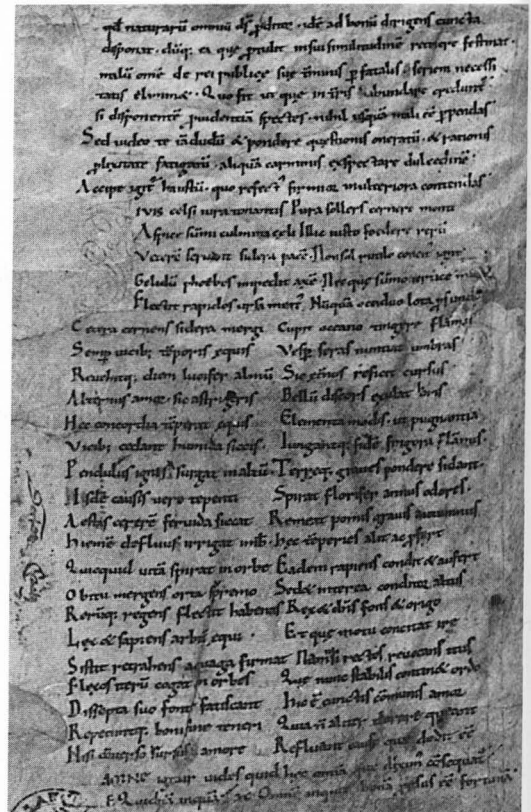 qd̄ naturarū omniū ds̄ ꝓditor. idē ad bonū dirigens cuncta
disponat. dūq; ea que ꝓtulit in sui similitudinē retinere festinat.
malū omē de rei publicę suę t̄minis ꝑ fatalis seriem necessi
tatis eliminet. Quo fit ut que in t̄ris habundare creduntr̄
si disponentē ꝓuidentiā spectes. nihil usquā mali eē ꝑpendas
Sed uideo te iā dudū & pondere questionis oneratū. & rationis
ꝓlixitate fatigatū. aliquā carminis exspectare dulcedinē.
Accipe igit̄ haustū. quo refectꝰ firmior in ulteriora contendas
IVIS celsi iura tonantis Pura sollers cernere mente
Aspice sūmi culmina celi Illic iusto foedere rerū
Veterē seruant sidera pacē. Non sol rutilo concitꝰ igne
Gelidū phoebes impedit axē. Nec que sūmo uertice mundi
Flectit rapidos ursa meatꝰ. Nūquā occiduo lota ꝓfundo
Cetera cernens sidera mergi Cupit oceano tingere flāmas
Semꝑ uicib; tēporis equis Vesꝑ seras nuntiat umbras
Reuehitq; diem lucifer almū Sic et̄nos reficit cursus
Alternus amor. sic astrigeris Bellū discors exulat oris
Hec concordia tēperat equis Elementa modis. ut pugnantia
Vicib; cedant humida siccis. Iungantq; fidē frigora flāmis.
Pendulus ignis surgat in altū. Terręq; graues pondere sidant.
Hisdē causis uere tepenti Spirat florifer annus odores.
Aestas cererē feruida siccat Remeat pomis grauis autumnus
Hiemē defluus irrigat imb̄ Hec tēperies alit ac ꝓfert
Quicquid uitā spirat in orbe Eadem rapiens condit & aufert
Obitu mergens orta sup̄mo Sedet interea conditor altus
Rerūq; regens flectit habenas Rex & dn̄s fons & origo
Lex & sapiens arbit̄ equi. Et que motu concitat ire
Sistit retrahens ac uaga firmat Nam nisi rectos reuocans itus
Flexos iterū cogat in orbes Que nunc stabilis continet ordo
Dissepta suo fonte fatiscant Hic ē cunctis cōmunis amor
Repetuntq; boni fine teneri Quia ñ aliter durare queant
Nisi conuerso rursus amore Refluant cause que dedit eē
AMNE igitur uides quid hec omnia que diximꝰ consequatr̄
Quidnā inquā. Omnē inquit bonā prorsus eē fortunā